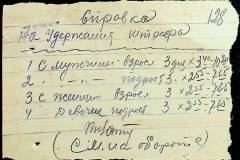 Справка 128
На Удержания штрафа
1 С мужчин взросл. 3 дня ×
2 " " подрост. 3 × 2⁵⁵ - 7⁶⁵
3 С женщин взросл. 3 × 2⁵⁵ - 7⁶⁵
4 Девочек подрост. 3 × 2⁵⁵ - 7⁶⁵
(См. на обороте)